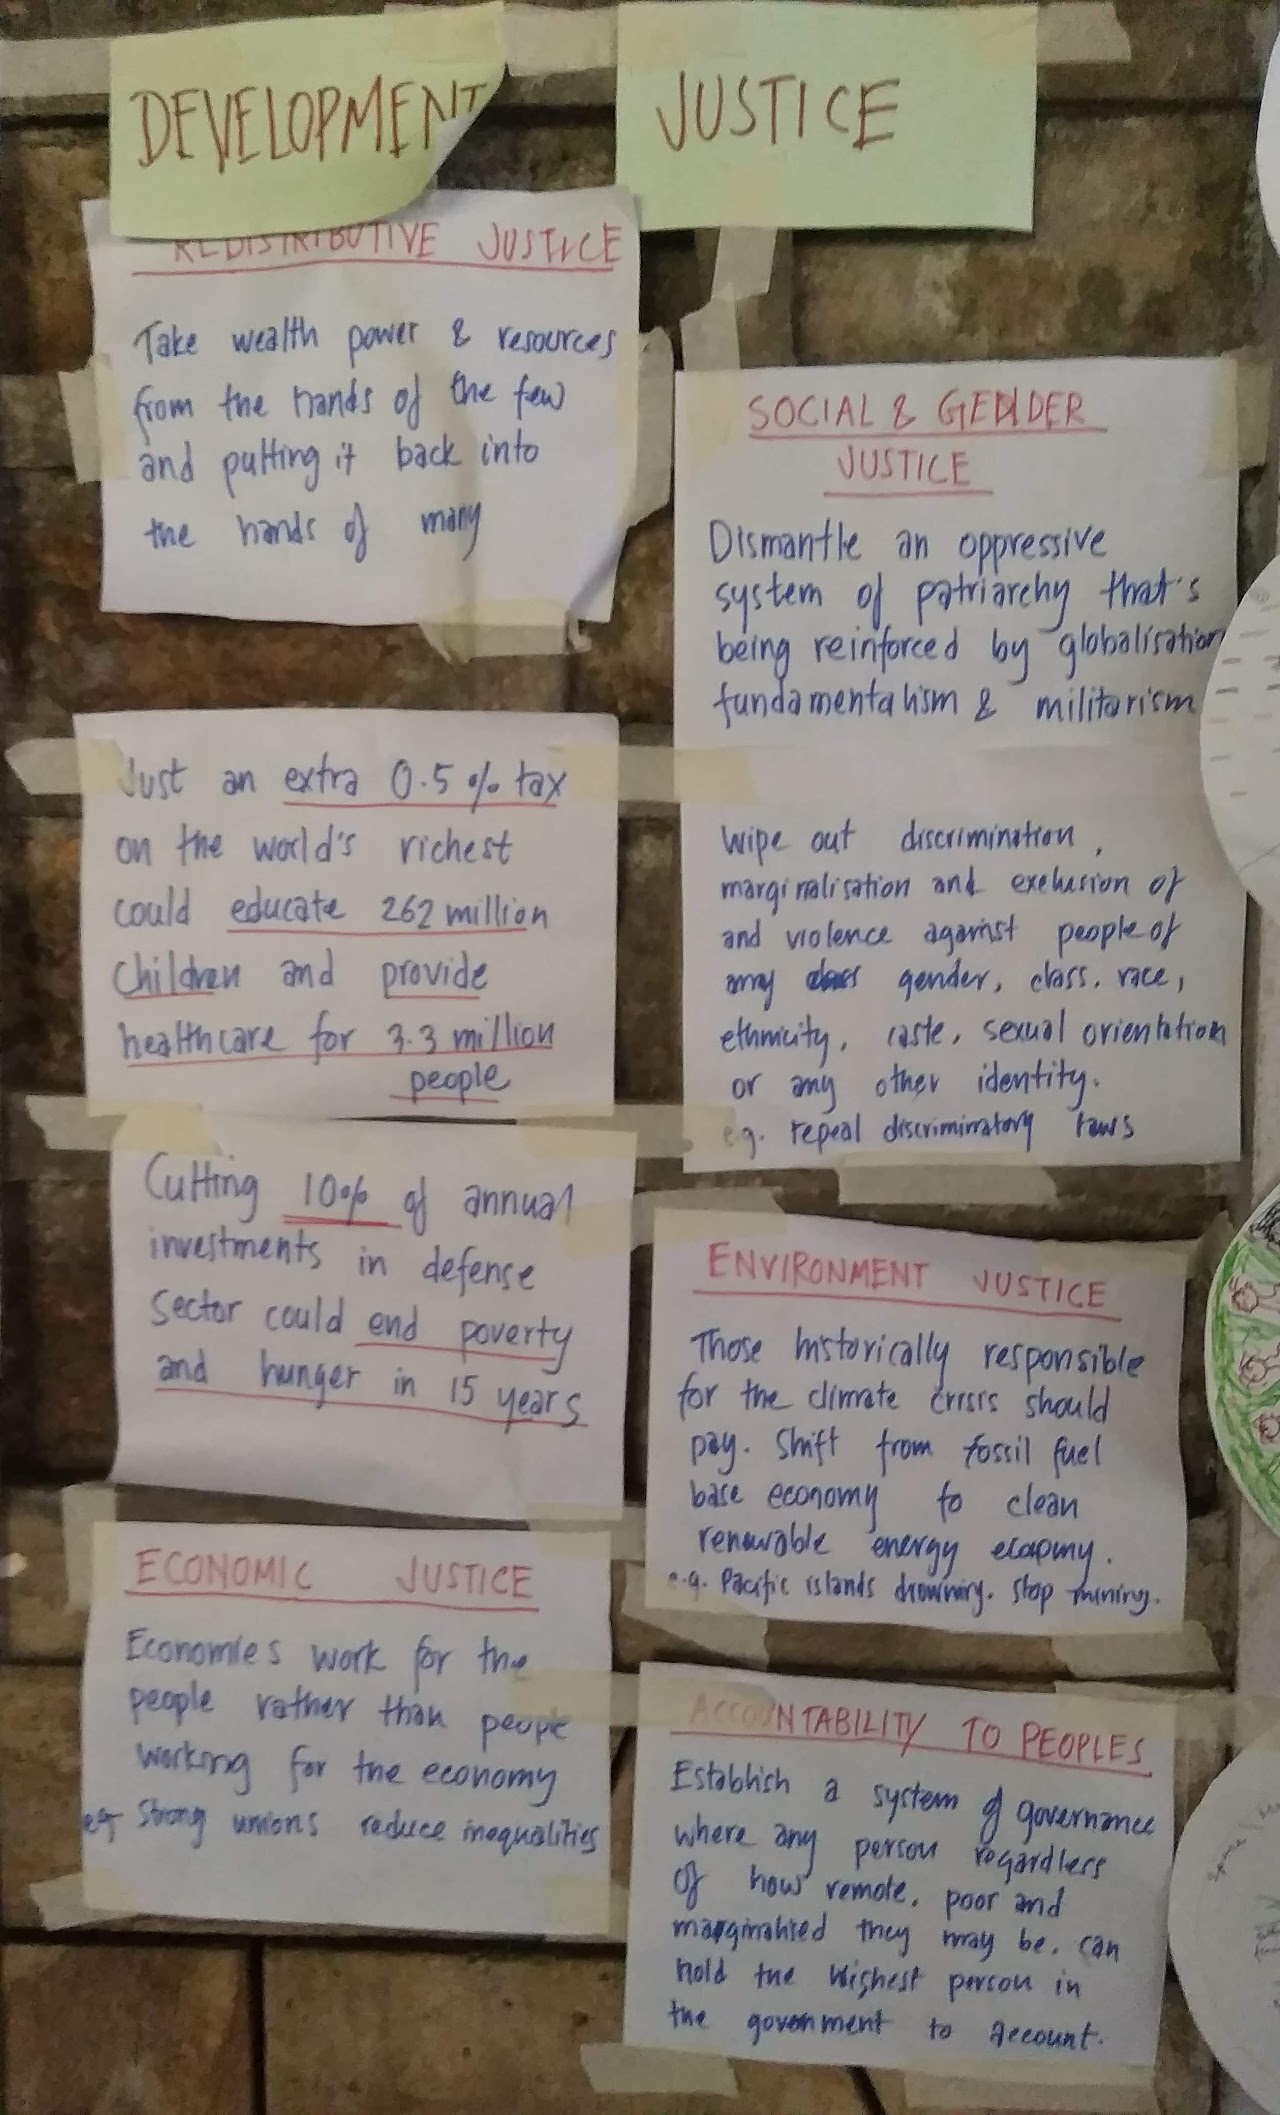 DEVELOPMENT JUSTICE
REDISTRIBUTIVE JUSTICE
Take wealth power & resources
from the hands of the few
and putting it back into
the hands of many
Just an extra 0.5% tax
on the world's richest
could educate 262 million
children and provide
healthcare for 3.3 million
people
Cutting 10% of annual
investments in defense
sector could end poverty
and hunger in 15 years
ECONOMIC JUSTICE
Economies work for the
people rather than people
working for the economy
eg strong unions reduce inequalities
SOCIAL & GENDER
JUSTICE
Dismantle an oppressive
system of patriarchy that's
being reinforced by globalisation
fundamentalism & militarism
Wipe out discrimination,
marginalisation and exclusion of
and violence against people of
any gender, class, race,
ethnicity, caste, sexual orientation
or any other identity.
e.g. repeal discriminatory laws
ENVIRONMENT JUSTICE
Those historically responsible
for the climate crisis should
pay. Shift from fossil fuel
base economy to clean
renewable energy economy.
e.g. Pacific islands drowning. Stop mining.
ACCOUNTABILITY TO PEOPLES
Establish a system of governance
where any person regardless
of how remote, poor and
marginalised they may be, can
hold the highest person in
the government to account.